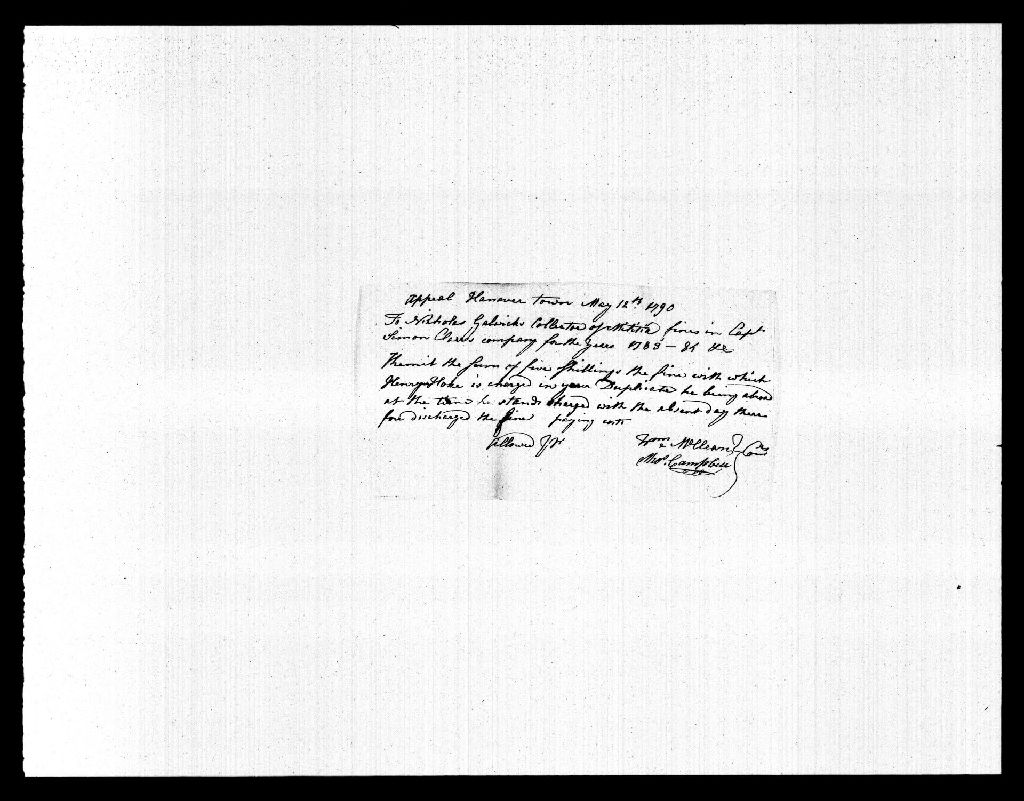 Appeal Hanover town May 12th 1790
To Nicholas Gelwicks Collector of Militia fines in Capt
Simon Clear company for the years 1783 - 84 &c
Remit the Sum of five Shillings the fine with which
Henry Hoke is charged in your Duplicate he being absent
at the time he stands charged with the absent day there
fore discharge the fine paying costs
Allowed
Wm McClean
Thos. Campbell